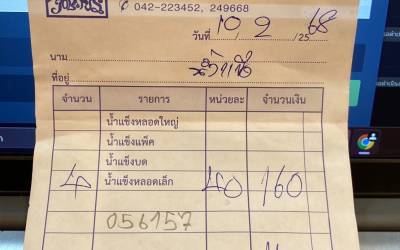 042-223452, 249668
วันที่ 10 / 2 / 2568
นาม
ที่อยู่
จำนวน รายการ หน่วยละ จำนวนเงิน
น้ำแข็งหลอดใหญ่
น้ำแข็งแพ็ค
น้ำแข็งบด
4 น้ำแข็งหลอดเล็ก 40 160
056157